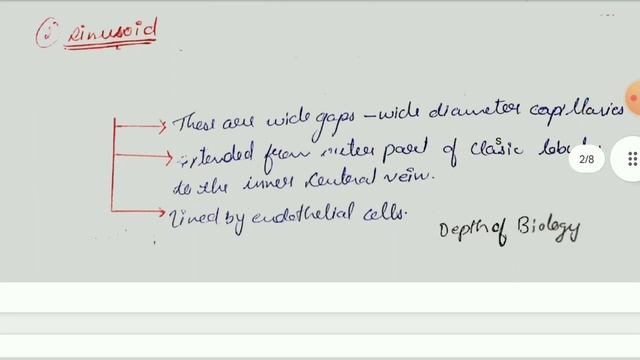 ② Sinusoid
These are wide gaps - wide diameter capillaries
Extended from outer part of Clasic lobule
to the inner Central vein.
lined by endothelial cells.
Depth of Biology
2/8